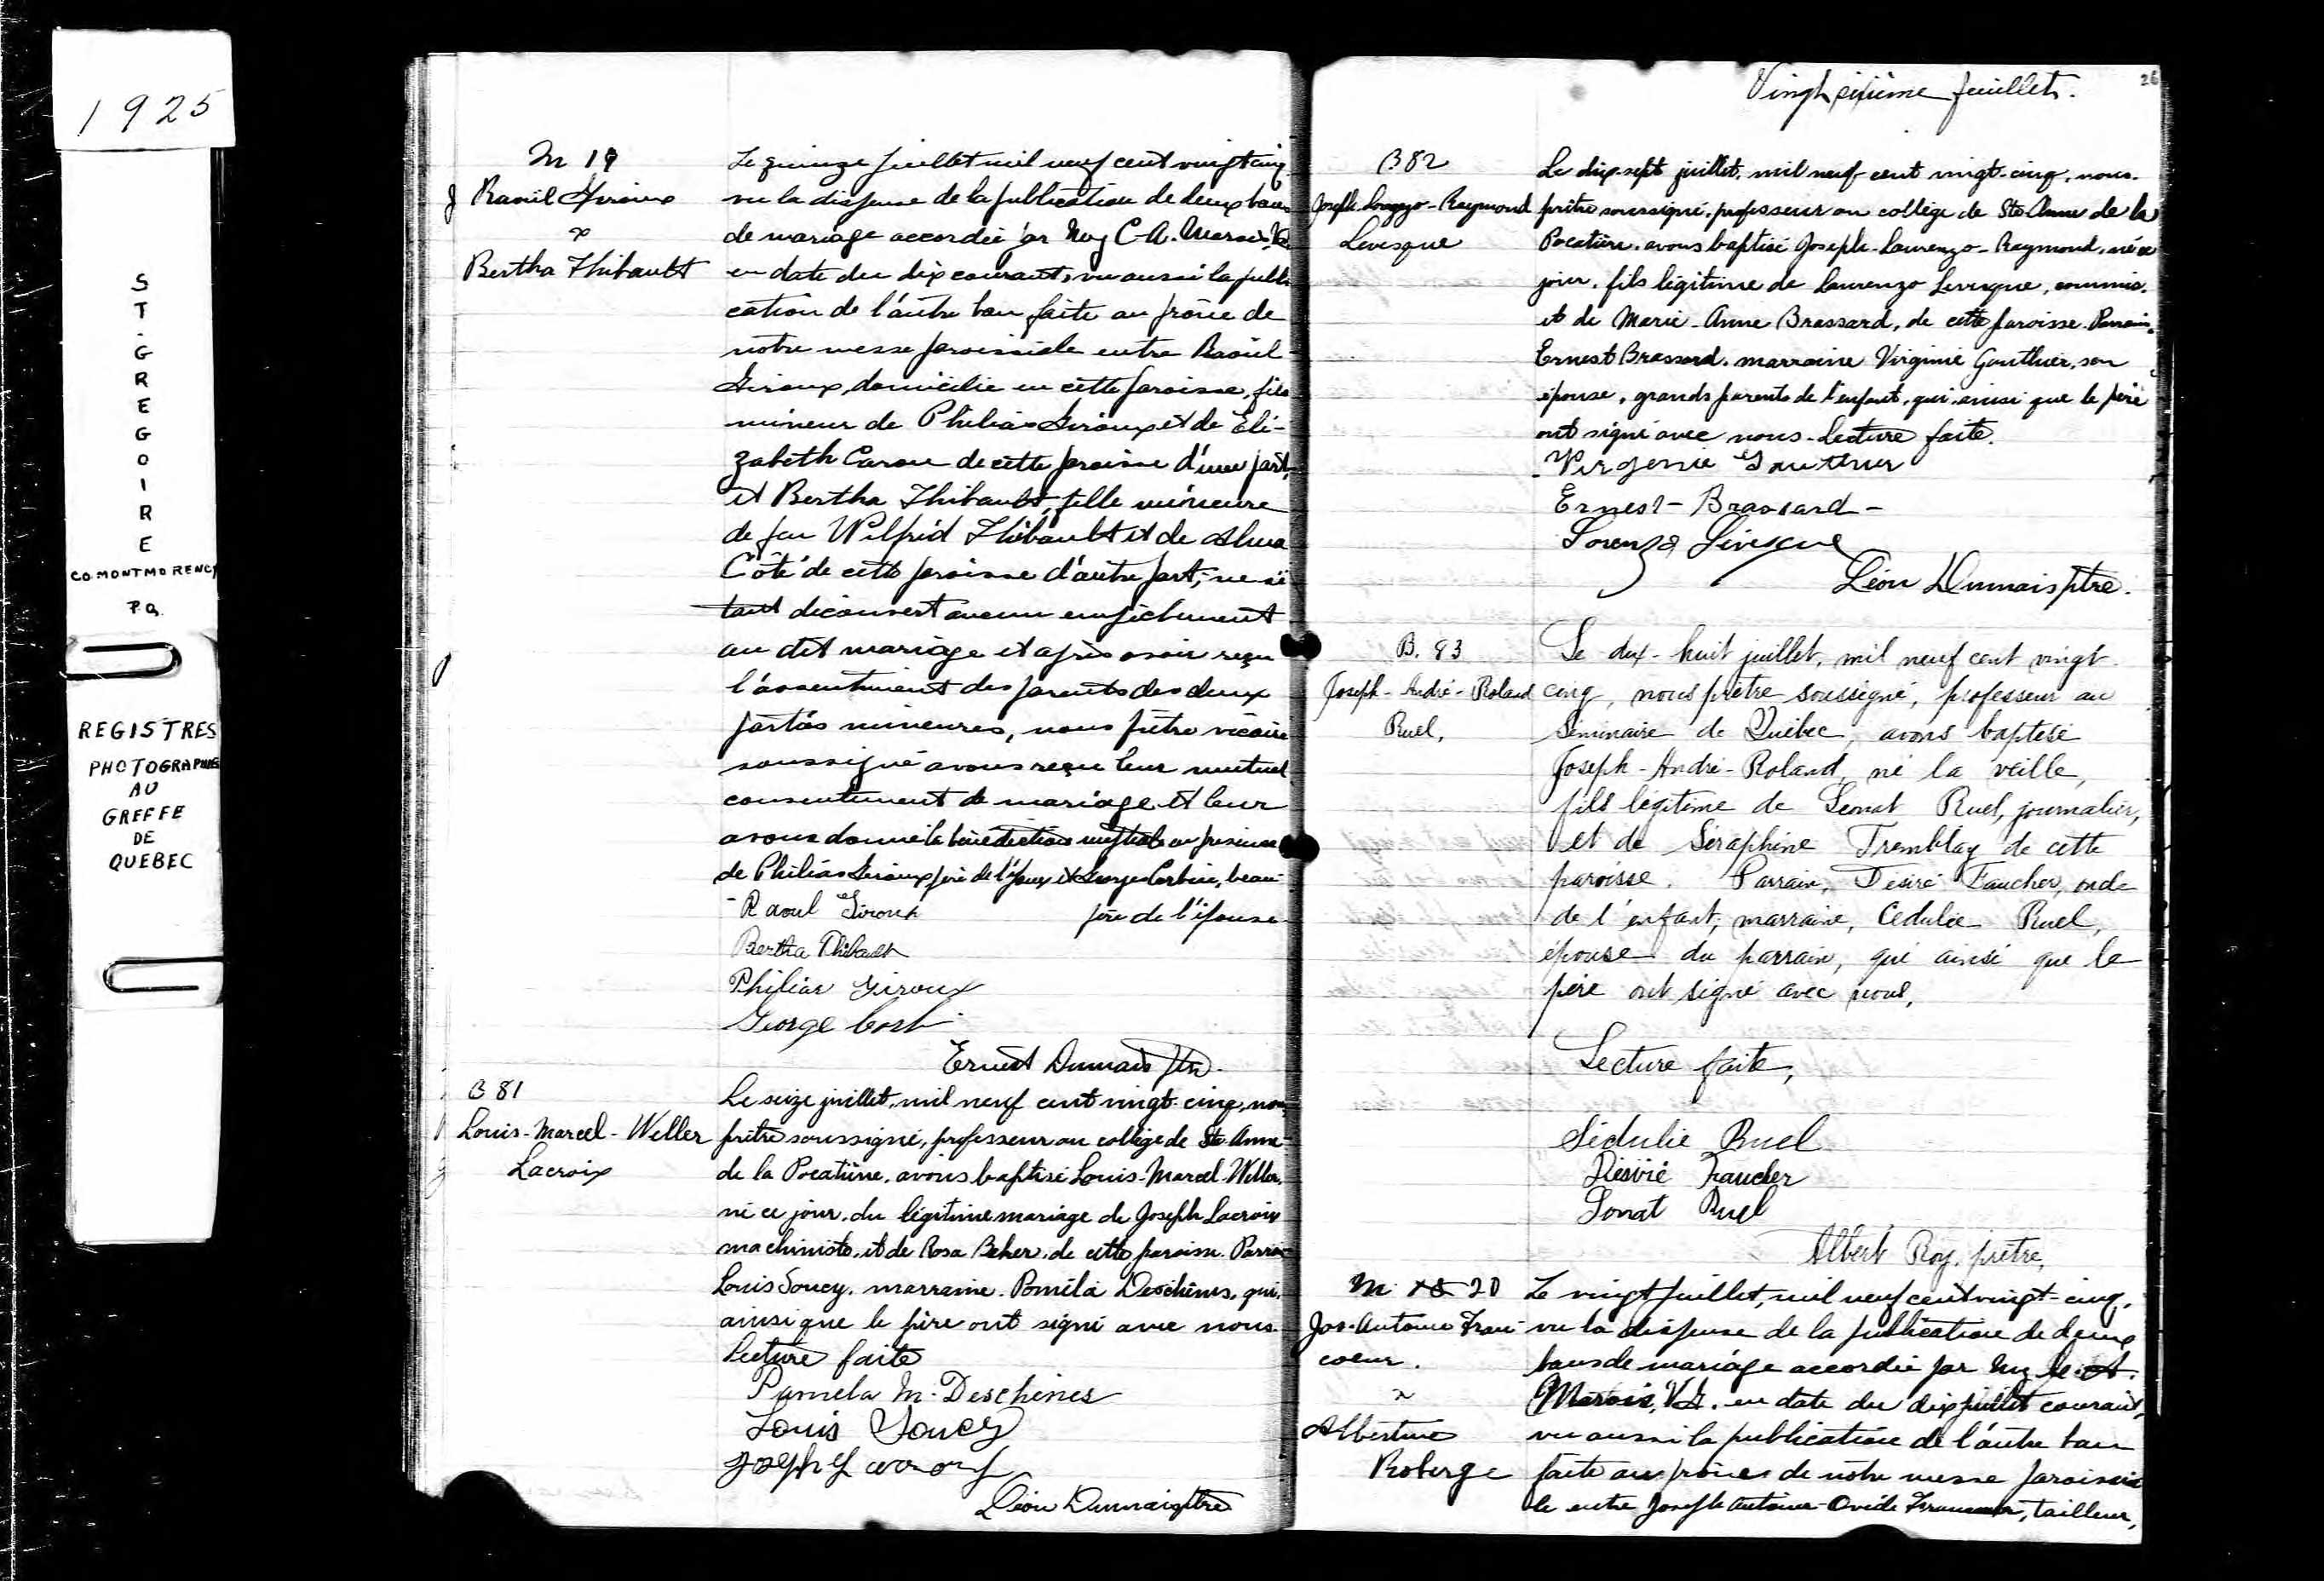 1925
ST. GREGOIRE
CO. MONTMORENCY
P.Q.
REGISTRES
PHOTOGRAPHIÉS
AU
GREFFE
DE
QUEBEC
M 19
J Raoul Giroux
&
Bertha Thibault
Le quinze juillet mil neuf cent vingt cinq
vu la dispense de la publication de deux bans
de mariage accordée par Mgr C-A. Marois, V.G.
en date du dix courant, vu aussi la publi
cation de l'autre ban faite au prône de
notre messe paroissiale entre Raoul
Giroux, domicilié en cette paroisse, fils
mineur de Philias Giroux et de Eli-
zabeth Caron de cette paroisse d'une part,
et Bertha Thibault, fille mineure
de feu Wilfrid Thibault et de Alma
Côté de cette paroisse d'autre part, ne s'é
tant découvert aucun empêchement
au dit mariage et après avoir reçu
l'assentiment des parents des deux
parties mineures, nous prêtre vicaire
soussigné avons reçu leur mutuel
consentement de mariage et leur
avons donné la bénédiction nuptiale en présence
de Philias Giroux père de l'époux et Georges Corbin, beau
père de l'épouse
Raoul Giroux
Bertha Thibault
Philias Giroux
George Corb
Ernest Dumais ptre.
B 81
Louis-Marcel-Weller
Lacroix
Le seize juillet, mil neuf cent vingt-cinq, nous
prêtre soussigné, professeur au collège de Ste Anne
de la Pocatière, avons baptisé Louis-Marcel-Weller,
né ce jour, du légitime mariage de Joseph Lacroix
machiniste, et de Rosa Beher, de cette paroisse. Parrain
Louis Soucy, marraine Poméla Deschênes, qui,
ainsi que le père ont signé avec nous.
Lecture faite
Pamela M-Deschênes
Louis Soucy
Joseph Lacroix
Léon Dumais ptre
Vingt sixième feuillet.
26
B 82
Joseph-Laurenzo-Raymond
Levesque
Le dix-sept juillet, mil neuf cent vingt-cinq, nous
prêtre soussigné, professeur au collège de Ste Anne de la
Pocatière, avons baptisé Joseph-Laurenzo-Raymond, né ce
jour, fils légitime de Laurenzo Levesque, commis,
et de Marie-Anne Brassard, de cette paroisse. Parrain,
Ernest Brassard, marraine Virginie Gauthier, son
épouse, grands parents de l'enfant, qui ainsi que le père
ont signé avec nous. Lecture faite.
Virgenie Gauthier
Ernest-Brassard-
Lorenzo Lévesque
Léon Dumais ptre.
B. 83
Joseph-André-Roland
Ruel,
Le dix-huit juillet, mil neuf cent vingt
cinq, nous prêtre soussigné, professeur au
Séminaire de Québec, avons baptisé
Joseph-André-Roland, né la veille,
fils légitime de Léonat Ruel, journalier,
et de Séraphine Tremblay de cette
paroisse. Parrain, Désiré Faucher, oncle
de l'enfant, marraine, Cédulie Ruel,
épouse du parrain, qui ainsi que le
père ont signé avec nous,
Lecture faite,
Sédulie Ruel
Désiré Faucher
Lonat Ruel
Albert Roy, prêtre,
M 18 20
Jos-Antoine Fran-
coeur.
&
Albertine
Roberge
Le vingt juillet, mil neuf cent vingt-cinq,
vu la dispense de la publication de deux
bans de mariage accordée par Mgr C.-A.
Marois, V.G. en date du dix juillet courant,
vu aussi la publication de l'autre ban
faite au prône de notre messe paroissia
le entre Joseph Antoine-Ovide Francoeur, tailleur,